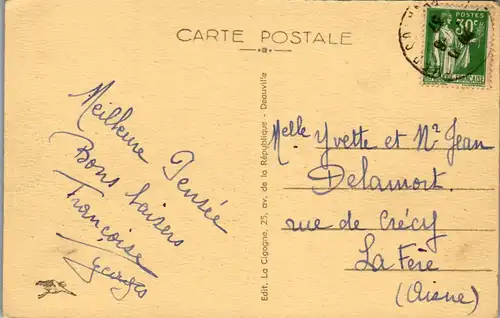 CARTE POSTALE
POSTES
30c
Meilleure Pensée
Bons baisers
Françoise
Georges
Edit. La Cigogne, 25, av. de la République - Deauville
Melle Yvette et Mr Jean
Delamort.
rue de Crécy
La Fère
(Aisne)